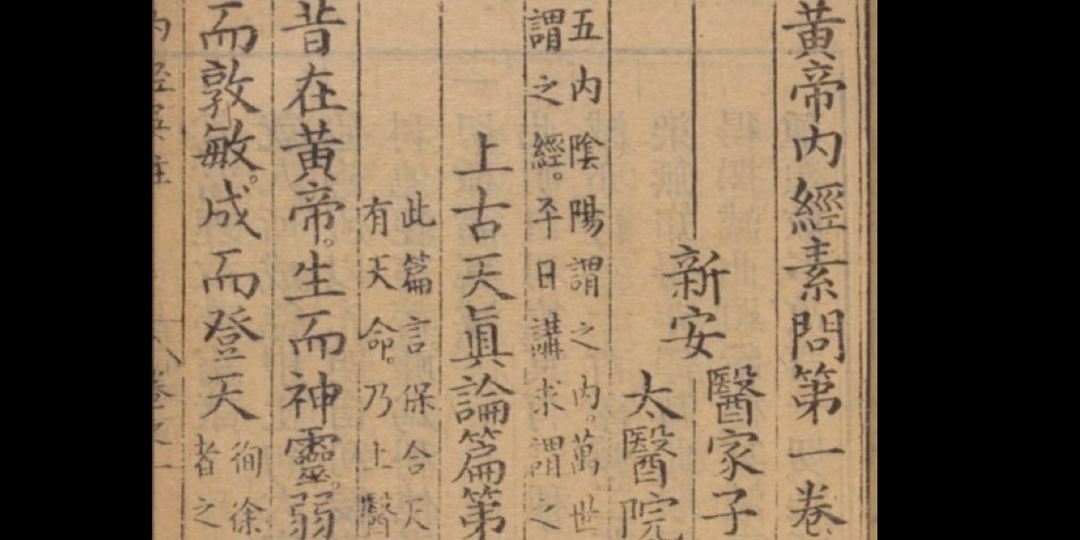 黃帝內經素問第一卷
醫家子
新安
太醫院
五內陰陽謂之內。萬世
謂之經。平日講求謂之
上古天眞論篇第
此篇言保合天
有天命。乃上醫
昔在黃帝。生而神靈。弱
而敦敏。成而登天
徇徐
者之
卷之一